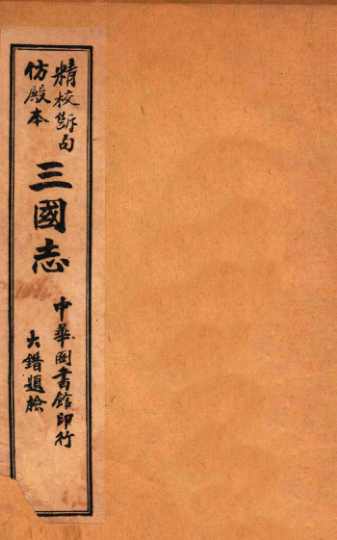 精校斷句
仿殿本
三國志
中華圖書館印行
大錯題檢